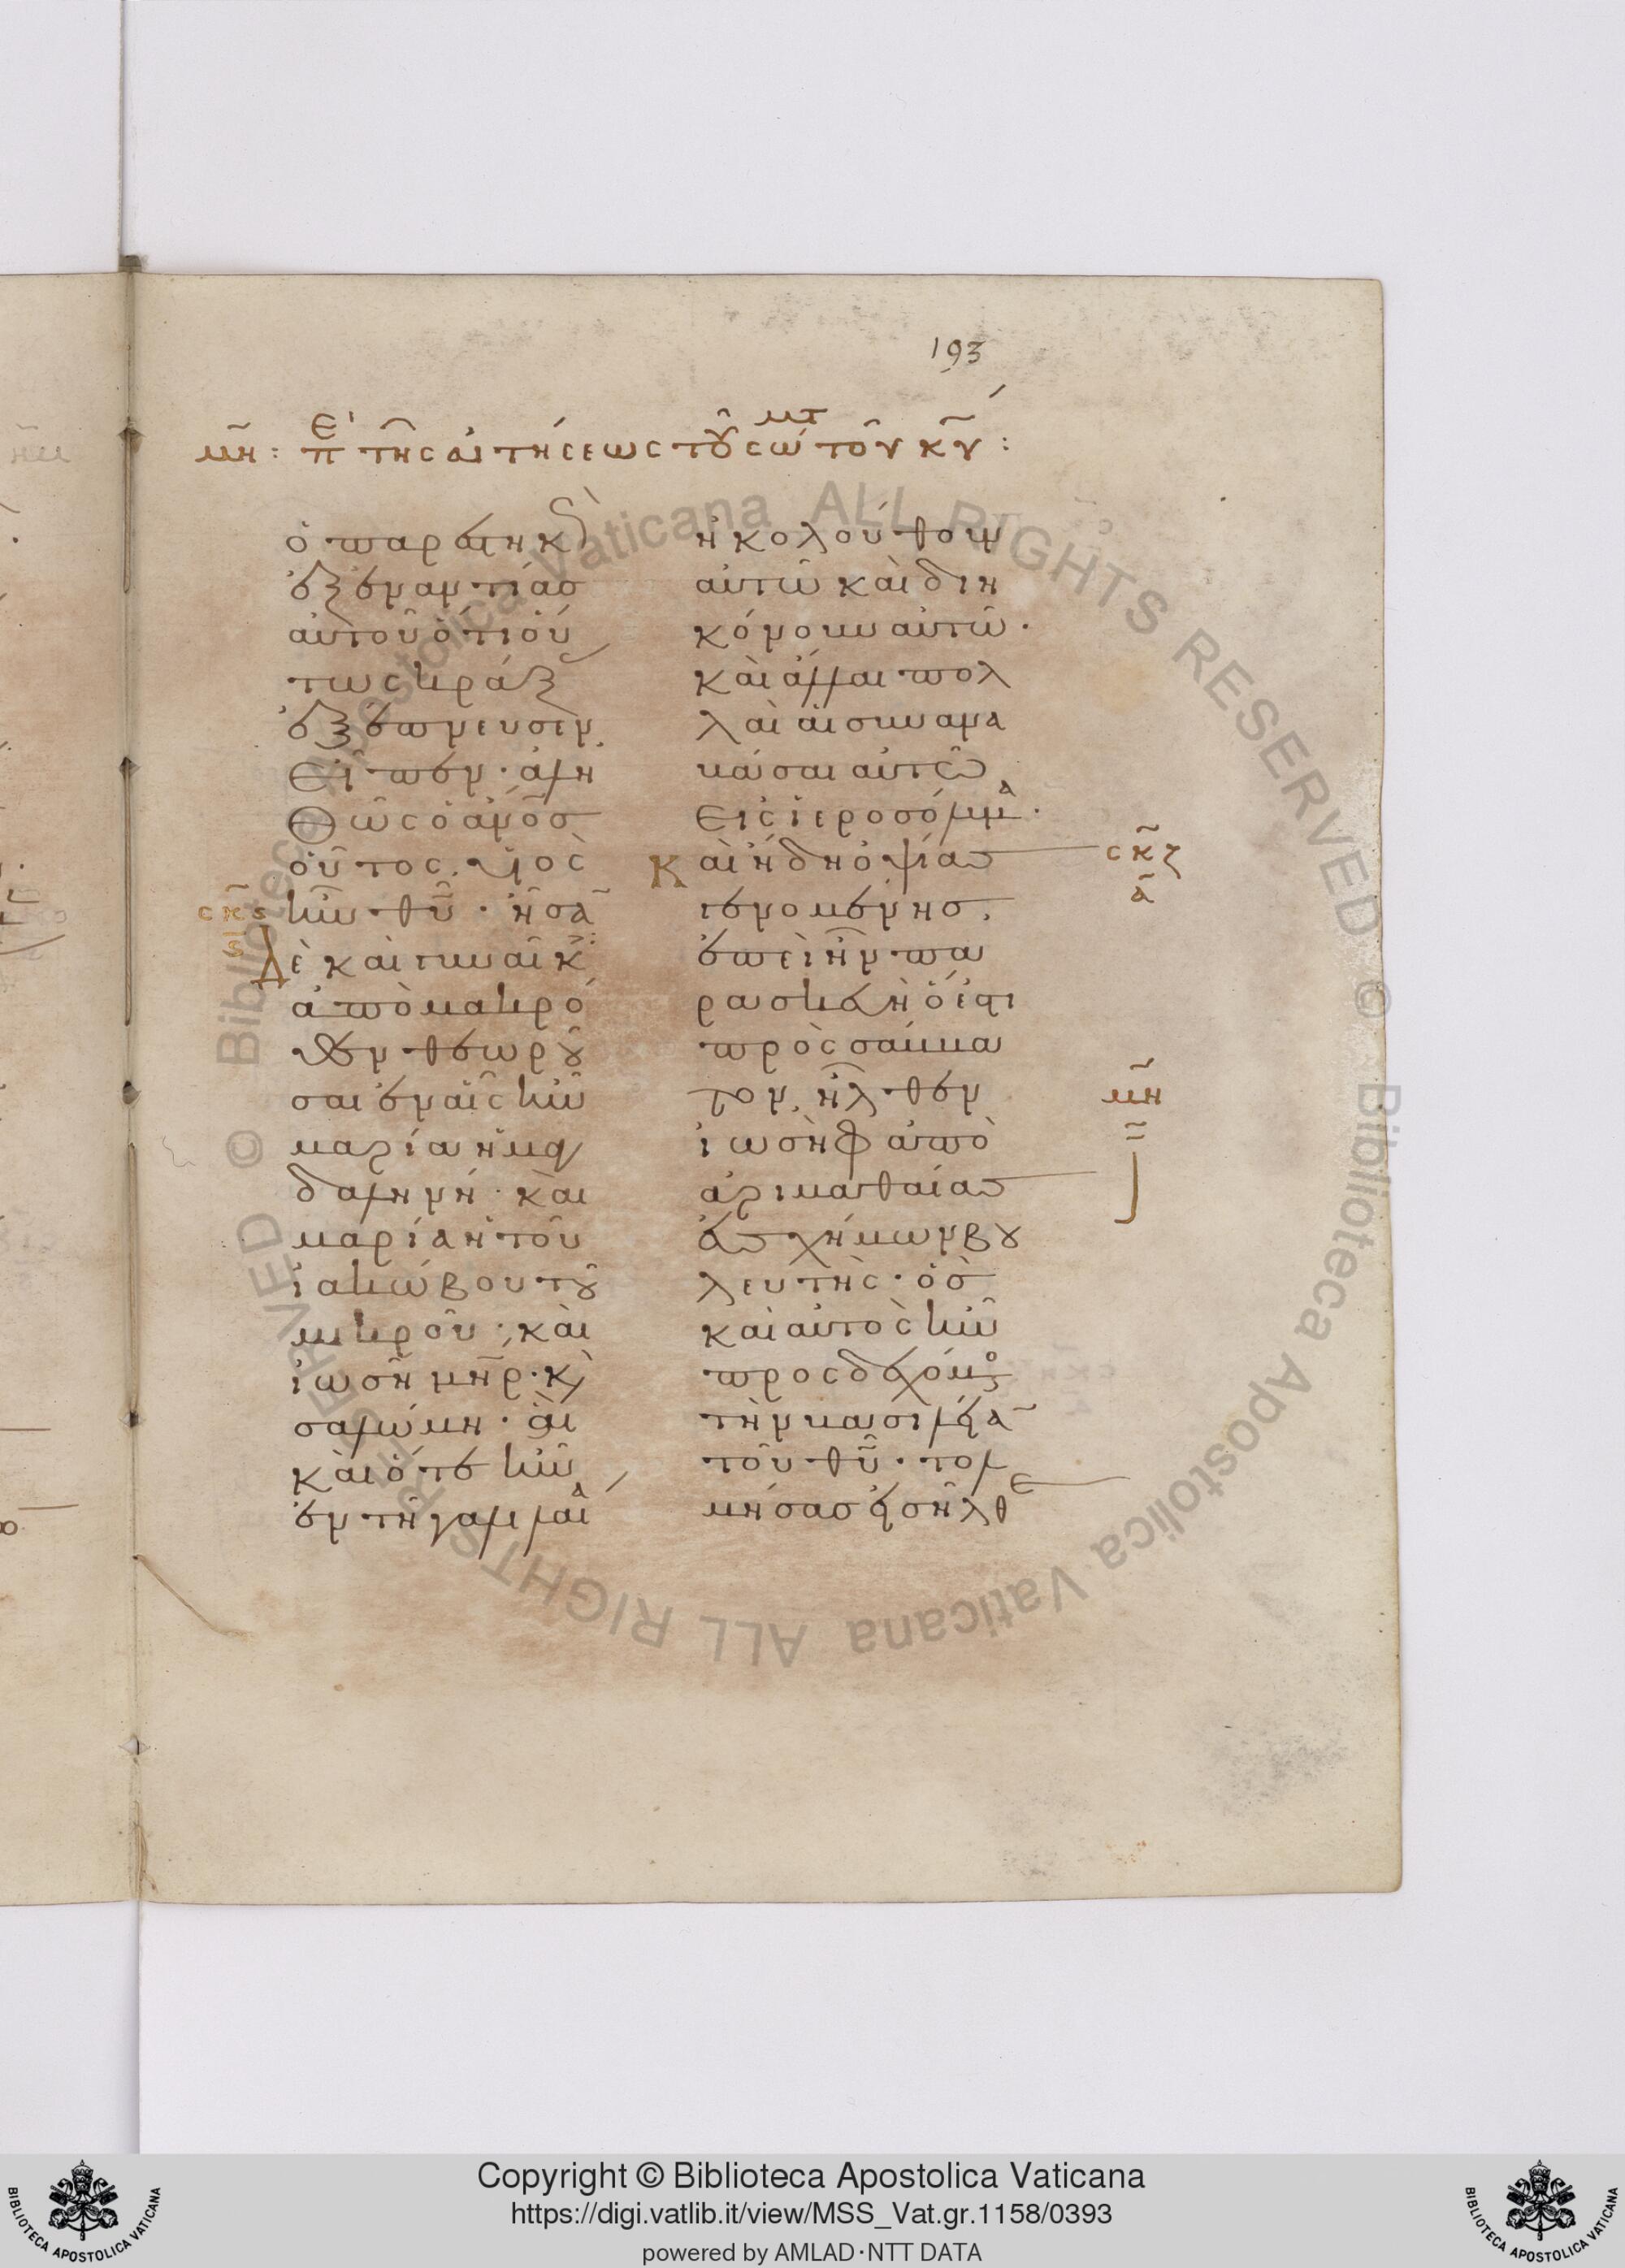 193
μῆ: πε' τῆς αἰτήσεως τοῦ σώμτ τοῦ κῦ:
ὁ παρεστηκὼ
ἐξεναντίας
αὐτοῦ ὅτι οὕ
τως κράξ
ἐξέπνευσεν.
Εἶπεν· ἀλη
Θῶς ὁ ἀνο̄ς
οὗτος. υἱὸς
ἦν θῦ. ἦσα̅
σκς
ς
Δὲ καὶ γυναῖκ
ἀπὸ μακρό
θεν θεωροῦ
σαι ἐν αἷς ἦν
μαρία ἡ μαγ
δαληνή· καὶ
μαρία ἡ τοῦ
ἰακώβου τοῦ
μικροῦ· καὶ
ἰωσῆ μηρ· κὶ
σαλώμη· αἳ
καὶ ὅτε ἦν
ἐν τῆ γαλιλαία
ἠκολούθουν
αὐτῶ καὶ διη
κόνουν αὐτῶ·
καὶ ἄλλαι πολ
λαὶ αἱ συνανα
βᾶσαι αὐτῶ
Εἰς ἱεροσόλυμα·
Καὶ ἤδη ὀψίας
σκζ
α
γενομένης.
ἐπεὶ ἦν πα
ρασκευὴ ὅ ἐστι
πρὸς σάββα
τον. ἦλθεν
μῆ
ἰωσὴφ ἀπὸ
ἀριμαθαίας
εὐσχήμων βου
λευτής· ὃς
καὶ αὐτὸς ἦν
προσδεχόμο
τὴν βασιλεία̅
τοῦ θῦ· τολ
μήσας εἰσῆλθε
Copyright © Biblioteca Apostolica Vaticana
https://digi.vatlib.it/view/MSS_Vat.gr.1158/0393
powered by AMLAD·NTT DATA
BIBLIOTECA APOSTOLICA VATICANA
BIBLIOTECA APOSTOLICA VATICANA
© Biblioteca Apostolica Vaticana ALL RIGHTS RESERVED © Biblioteca Apostolica Vaticana ALL RIGHTS RESERVED